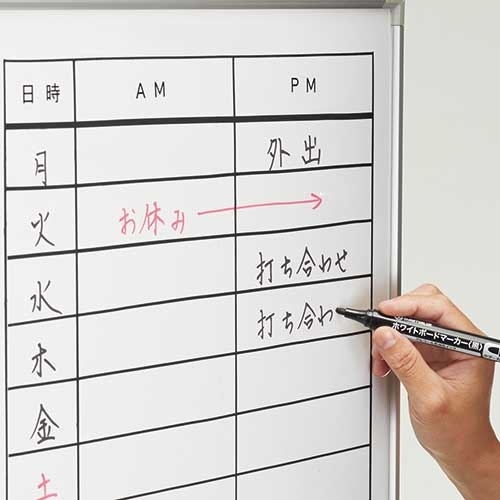 日時 AM PM
月 外出
火 お休み →
水 打ち合わせ
木 打ち合わ
金
土
ホワイトボードマーカー〈黒〉